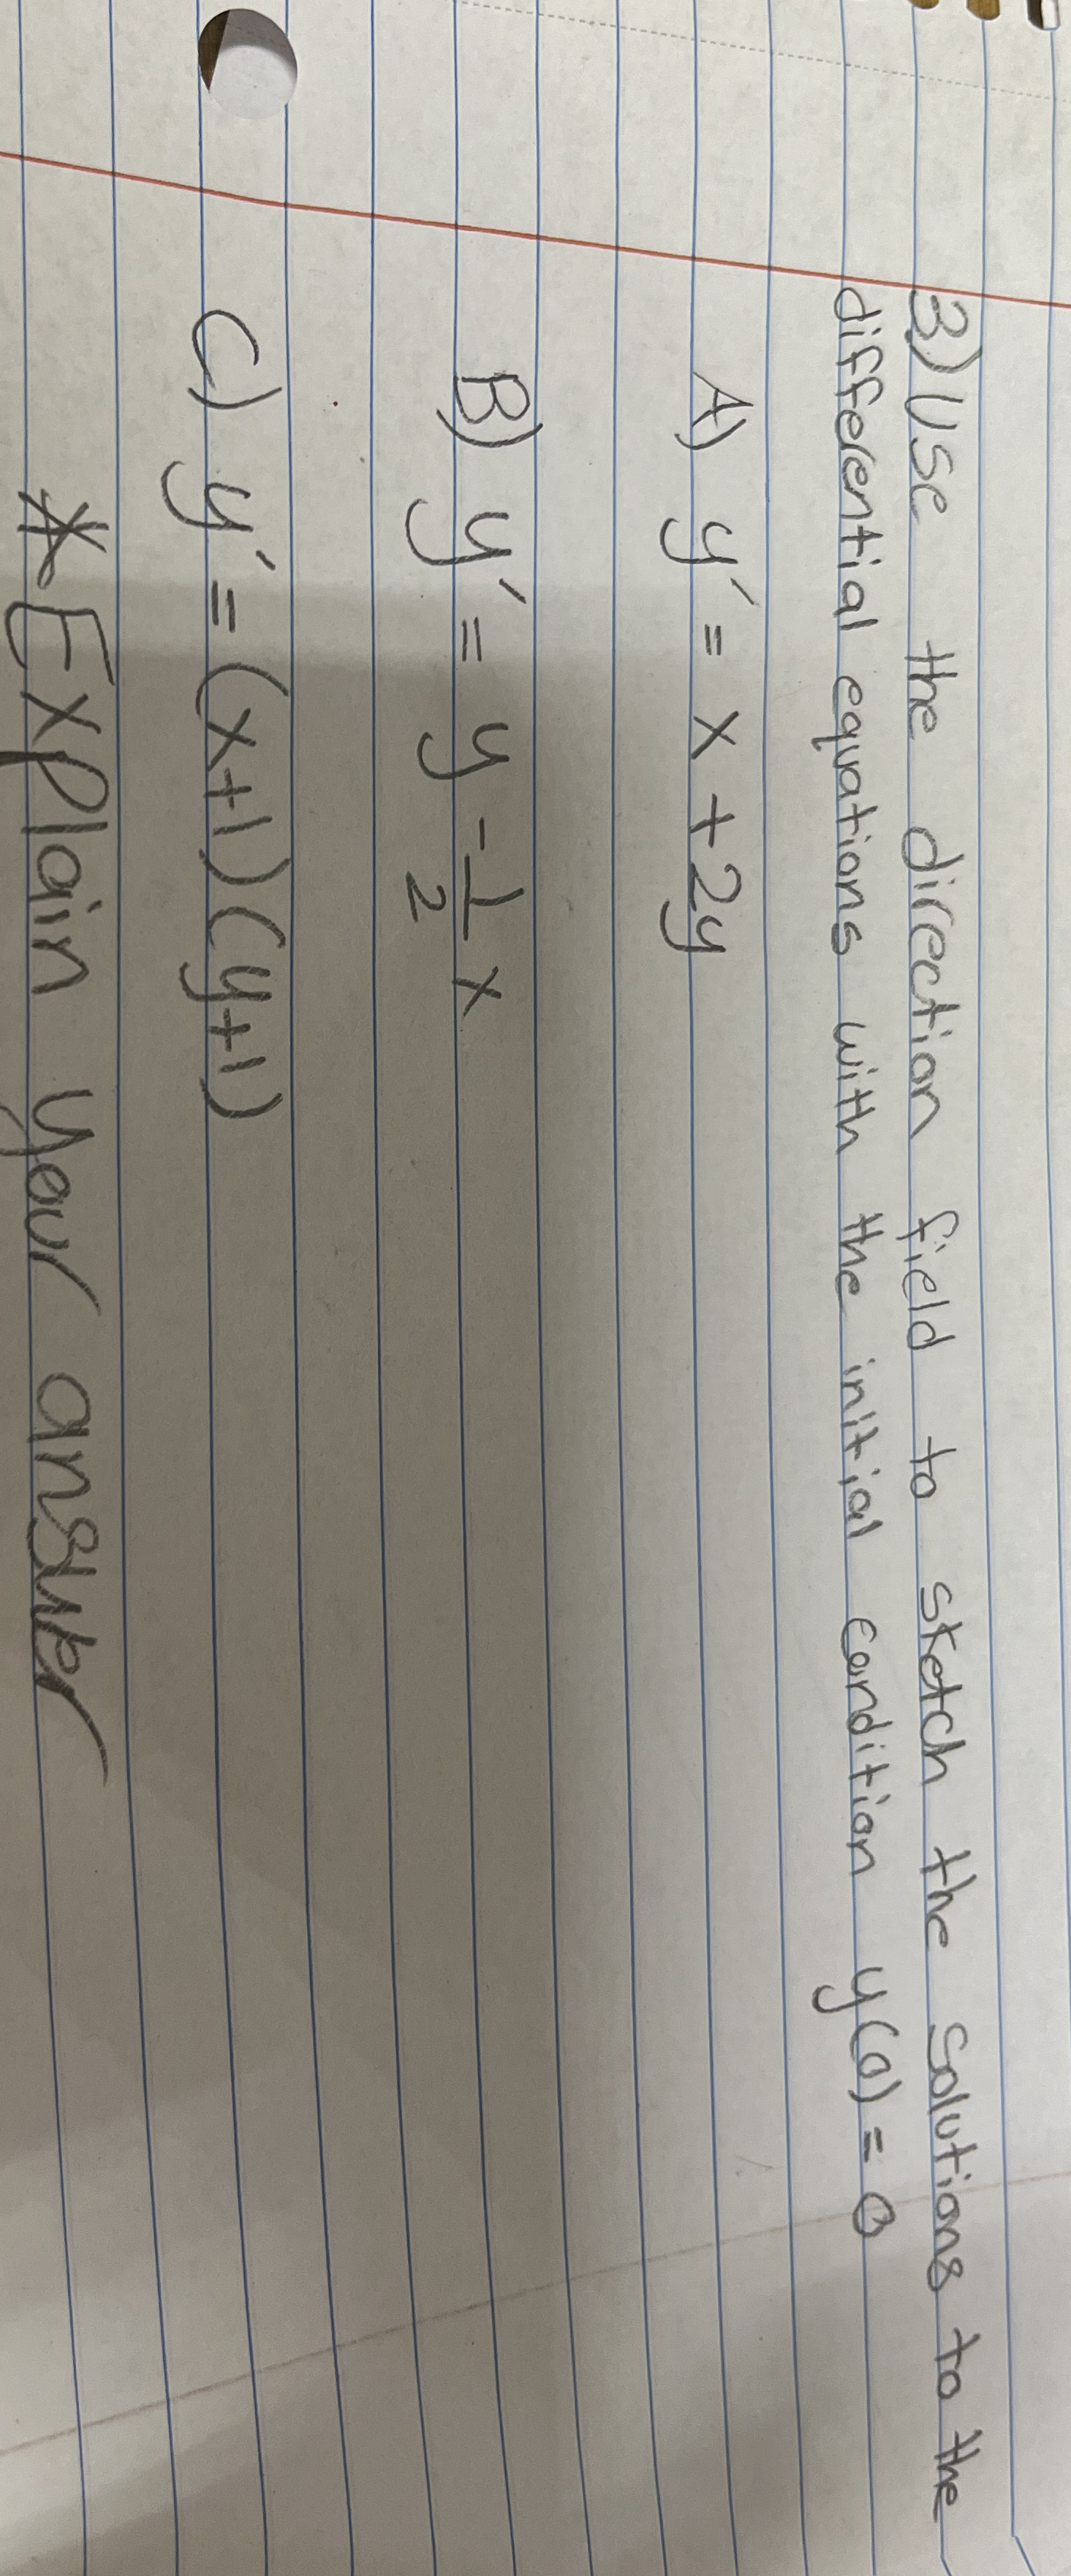 3) Use the direction field to sketch the solutions to the
differential equations with the initial condition y(0) = 0
A) y' = x + 2y
B) y' = y - 1/2 x
C) y' = (x+1)(y+1)
* Explain your answer